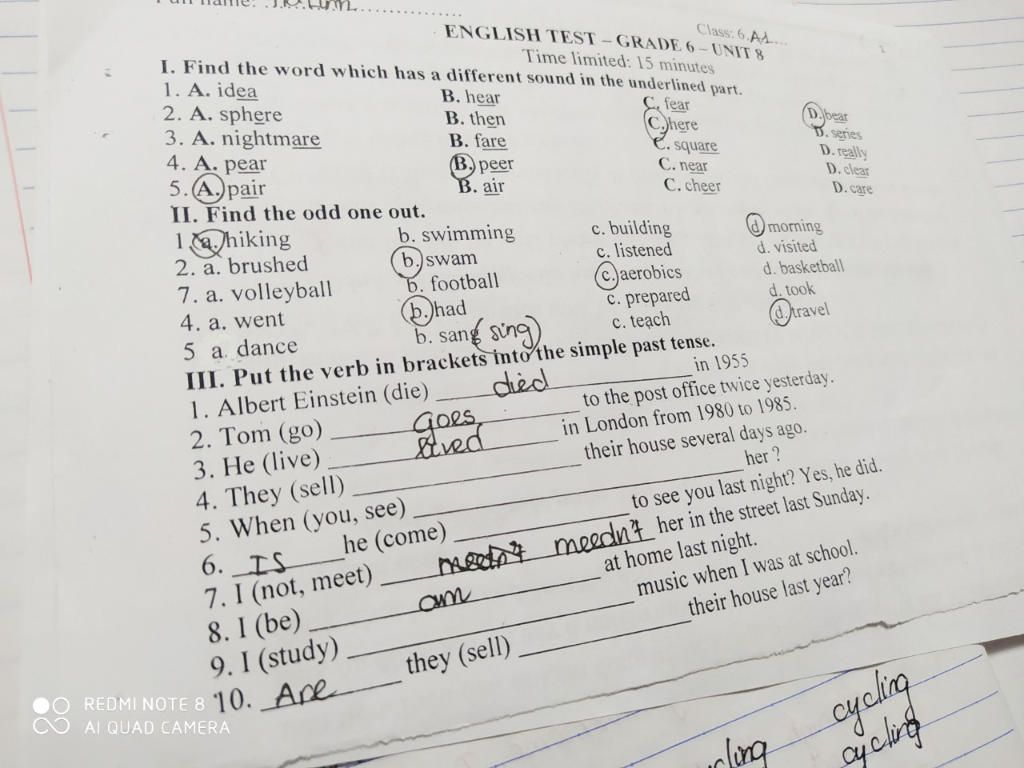 Full name: T.Q.Linh
Class: 6.A1
ENGLISH TEST – GRADE 6 – UNIT 8
Time limited: 15 minutes
I. Find the word which has a different sound in the underlined part.
1. A. idea B. hear C. fear D. bear
2. A. sphere B. then C. here D. series
3. A. nightmare B. fare C. square D. really
4. A. pear B. peer C. near D. clear
5. A. pair B. air C. cheer D. care
II. Find the odd one out.
1 a. hiking b. swimming c. building d. morning
2. a. brushed b. swam c. listened d. visited
7. a. volleyball b. football c. aerobics d. basketball
4. a. went b. had c. prepared d. took
5 a. dance b. sang (sing) c. teach d. travel
III. Put the verb in brackets into the simple past tense.
1. Albert Einstein (die) died in 1955
2. Tom (go) goes to the post office twice yesterday.
3. He (live) lived in London from 1980 to 1985.
4. They (sell) their house several days ago.
5. When (you, see) her ?
6. IS he (come) to see you last night? Yes, he did.
7. I (not, meet) meedn't her in the street last Sunday.
8. I (be) am at home last night.
9. I (study) music when I was at school.
10. Are they (sell) their house last year?
cycling
cycling
REDMI NOTE 8
AI QUAD CAMERA